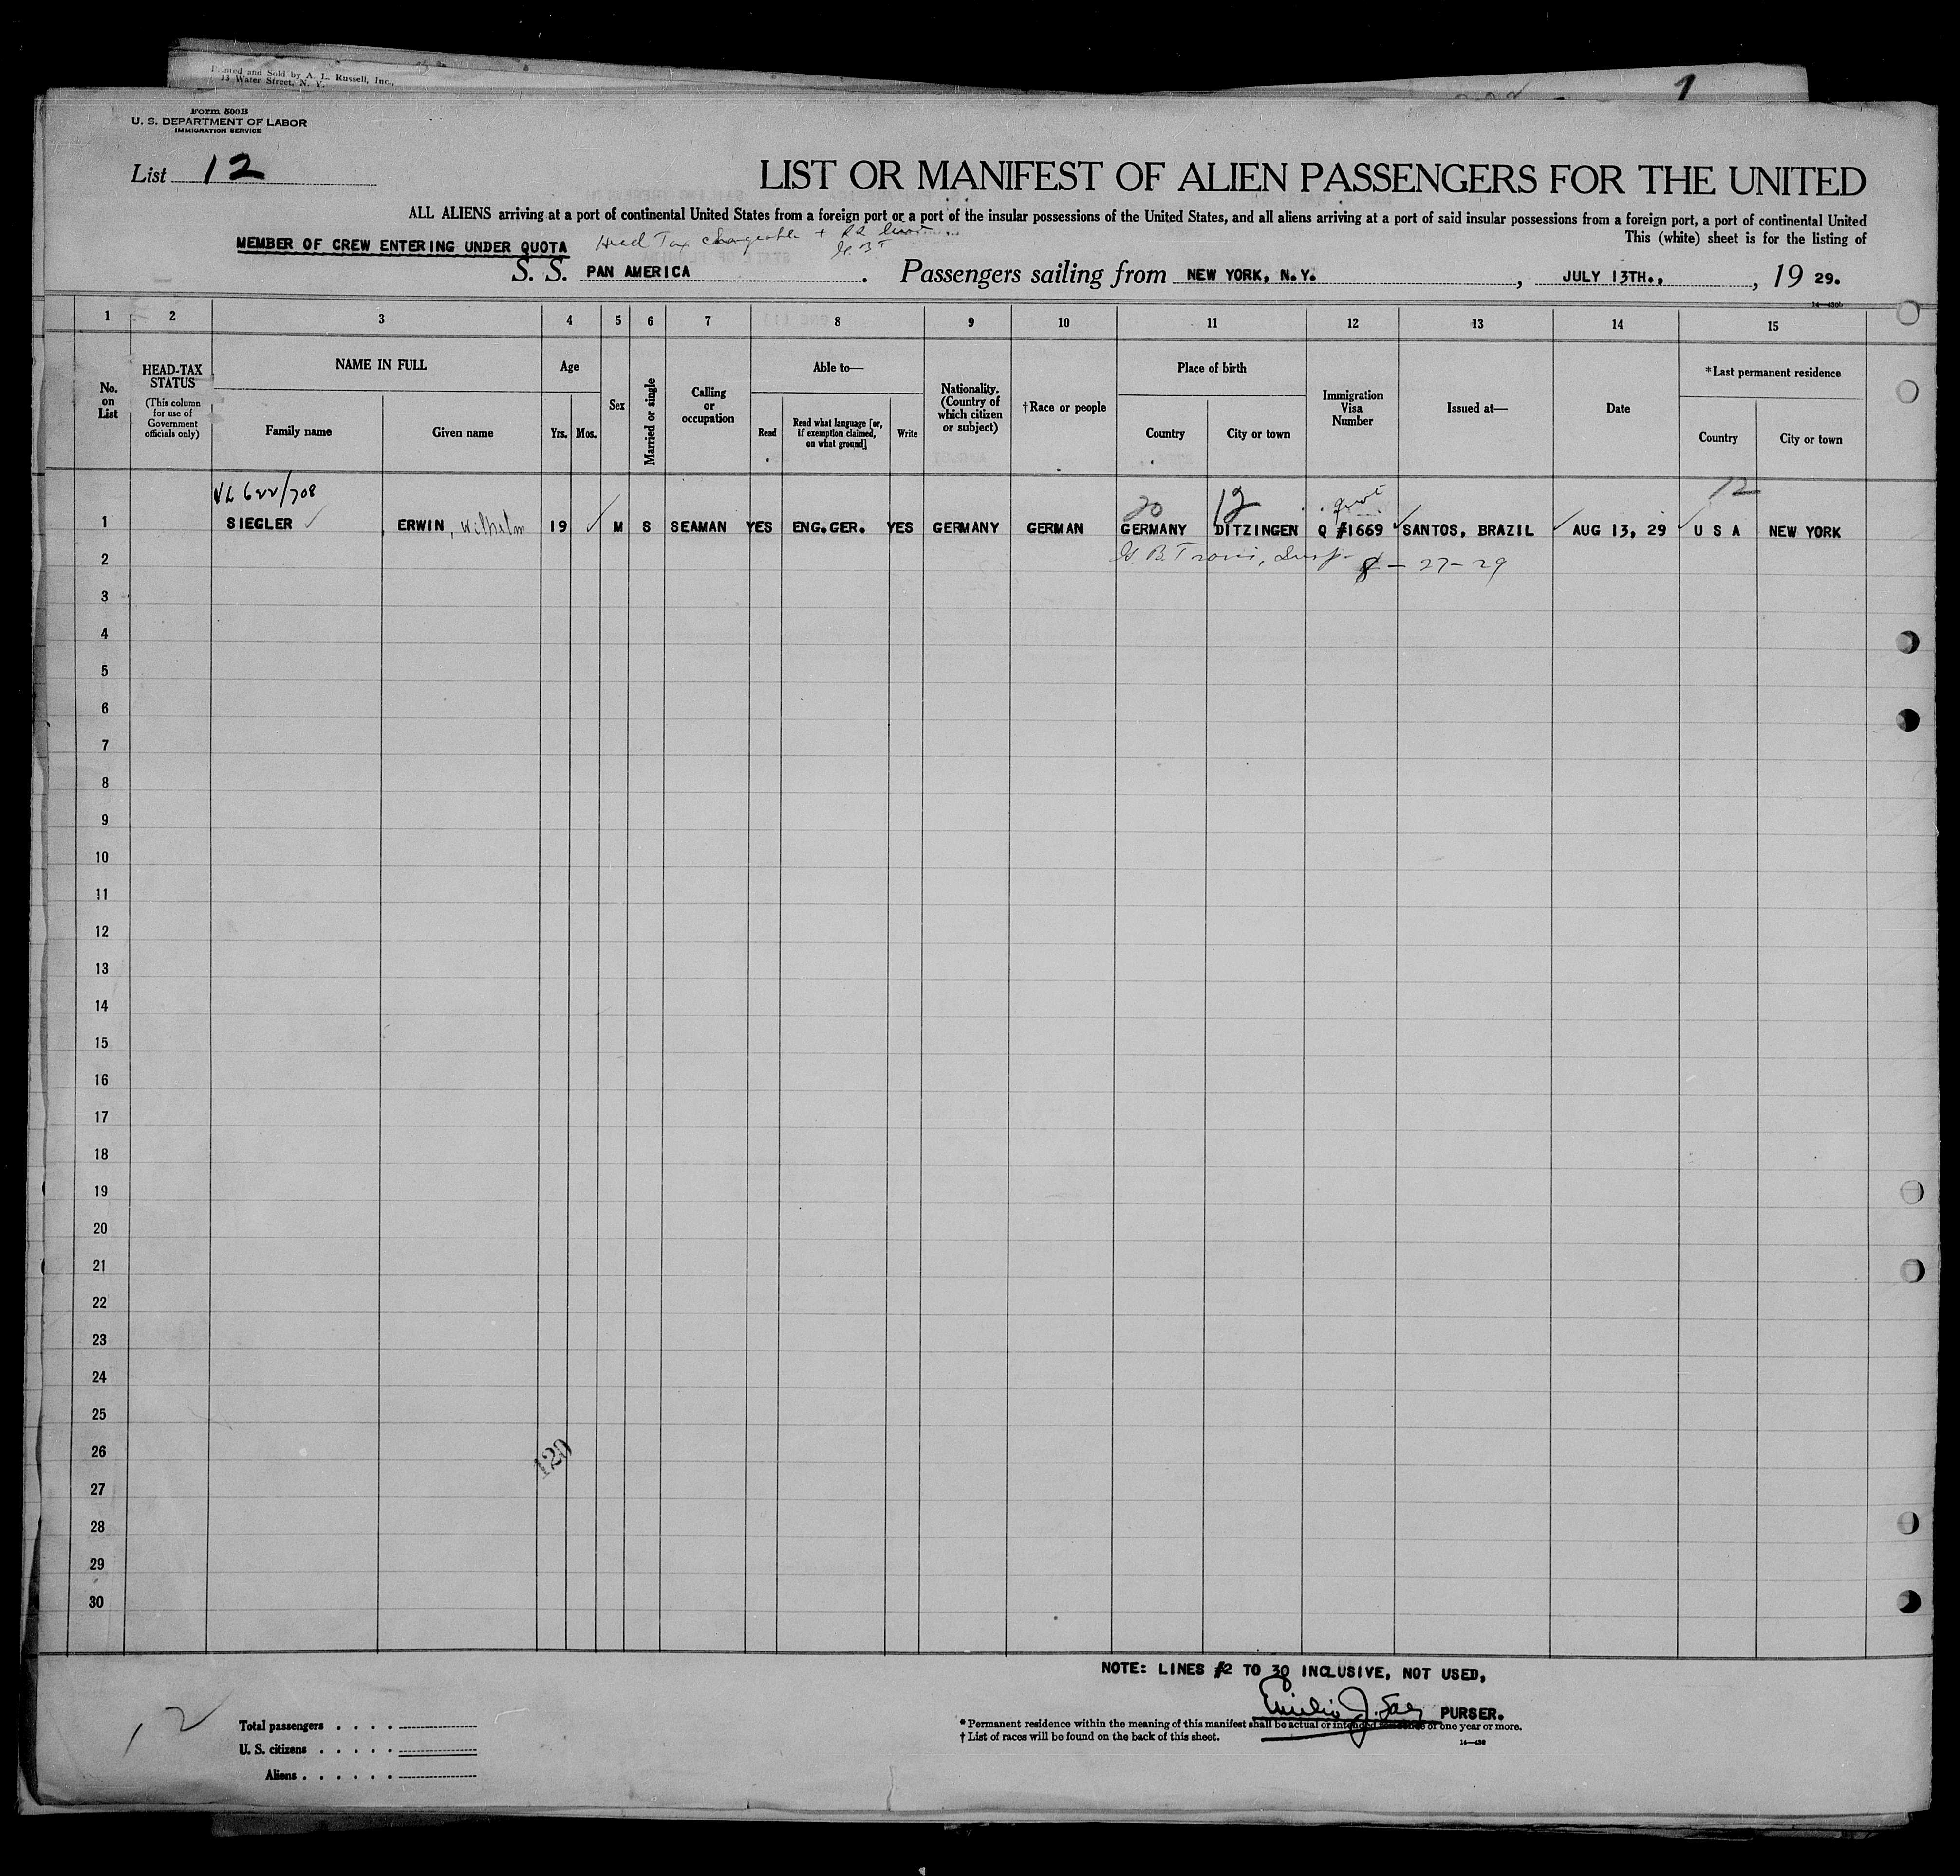 Printed and Sold by A. L. Russell, Inc.,
13 Water Street, N. Y.
1
Form 500B
U. S. DEPARTMENT OF LABOR
IMMIGRATION SERVICE
List 12
LIST OR MANIFEST OF ALIEN PASSENGERS FOR THE UNITED
ALL ALIENS arriving at a port of continental United States from a foreign port or a port of the insular possessions of the United States, and all aliens arriving at a port of said insular possessions from a foreign port, a port of continental United
This (white) sheet is for the listing of
MEMBER OF CREW ENTERING UNDER QUOTA Head Tax chargeable +
S. S. PAN AMERICA. Passengers sailing from NEW YORK, N.Y., JULY 13TH., , 19 29.
1 2 3 4 5 6 7 8 9 10 11 12 13 14 15
No. on List
HEAD-TAX STATUS
(This column for use of Government officials only)
NAME IN FULL
Family name
Given name
Age
Yrs.
Mos.
Sex
Married or single
Calling or occupation
Able to—
Read
Read what language [or, if exemption claimed, on what ground]
Write
Nationality. (Country of which citizen or subject)
†Race or people
Place of birth
Country
City or town
Immigration Visa Number
Issued at—
Date
*Last permanent residence
Country
City or town
20 12 12
1 SIEGLER ✓ ERWIN, Wilhelm 19 ✓ M S SEAMAN YES ENG.GER. YES GERMANY GERMAN GERMANY DITZINGEN Q #1669 ✓ SANTOS, BRAZIL ✓ AUG 13, 29 ✓ U S A NEW YORK
2 8-27-29
3
4
5
6
7
8
9
10
11
12
13
14
15
16
17
18
19
20
21
22
23
24
25
26
120
27
28
29
30
NOTE: LINES #2 TO 30 INCLUSIVE, NOT USED,
PURSER.
12
Total passengers
U. S. citizens
Aliens
* Permanent residence within the meaning of this manifest shall be actual or intended residence of one year or more.
† List of races will be found on the back of this sheet.